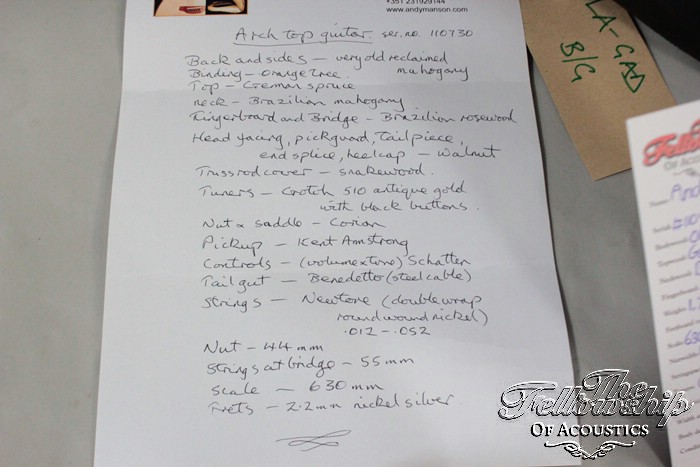 +351 231929144
www.andymanson.com
Arch top guitar. ser. no. 110730
Back and sides – very old reclaimed
mahogany
Binding – Orange tree.
Top – German spruce
neck – Brazilian mahogany
Fingerboard and Bridge – Brazilian rosewood
Head facing, pickguard, tailpiece,
end splice, heelcap – Walnut
Truss rod cover – snakewood.
Tuners – Grotch 510 antique gold
with black buttons.
Nut & saddle – Corian
Pickup – Kent Amstrong
Controls – (volume x tone) Schatten
Tail gut – Benedetto (steel cable)
Strings – Newtone (double wrap
round wound nickel)
.012 – .052
Nut – 44 mm
Strings at bridge – 55 mm
Scale – 630 mm
Frets – 2.2 mm nickel silver.
LA-GAD
B/G
The
Fellowship
OF ACOUSTICS